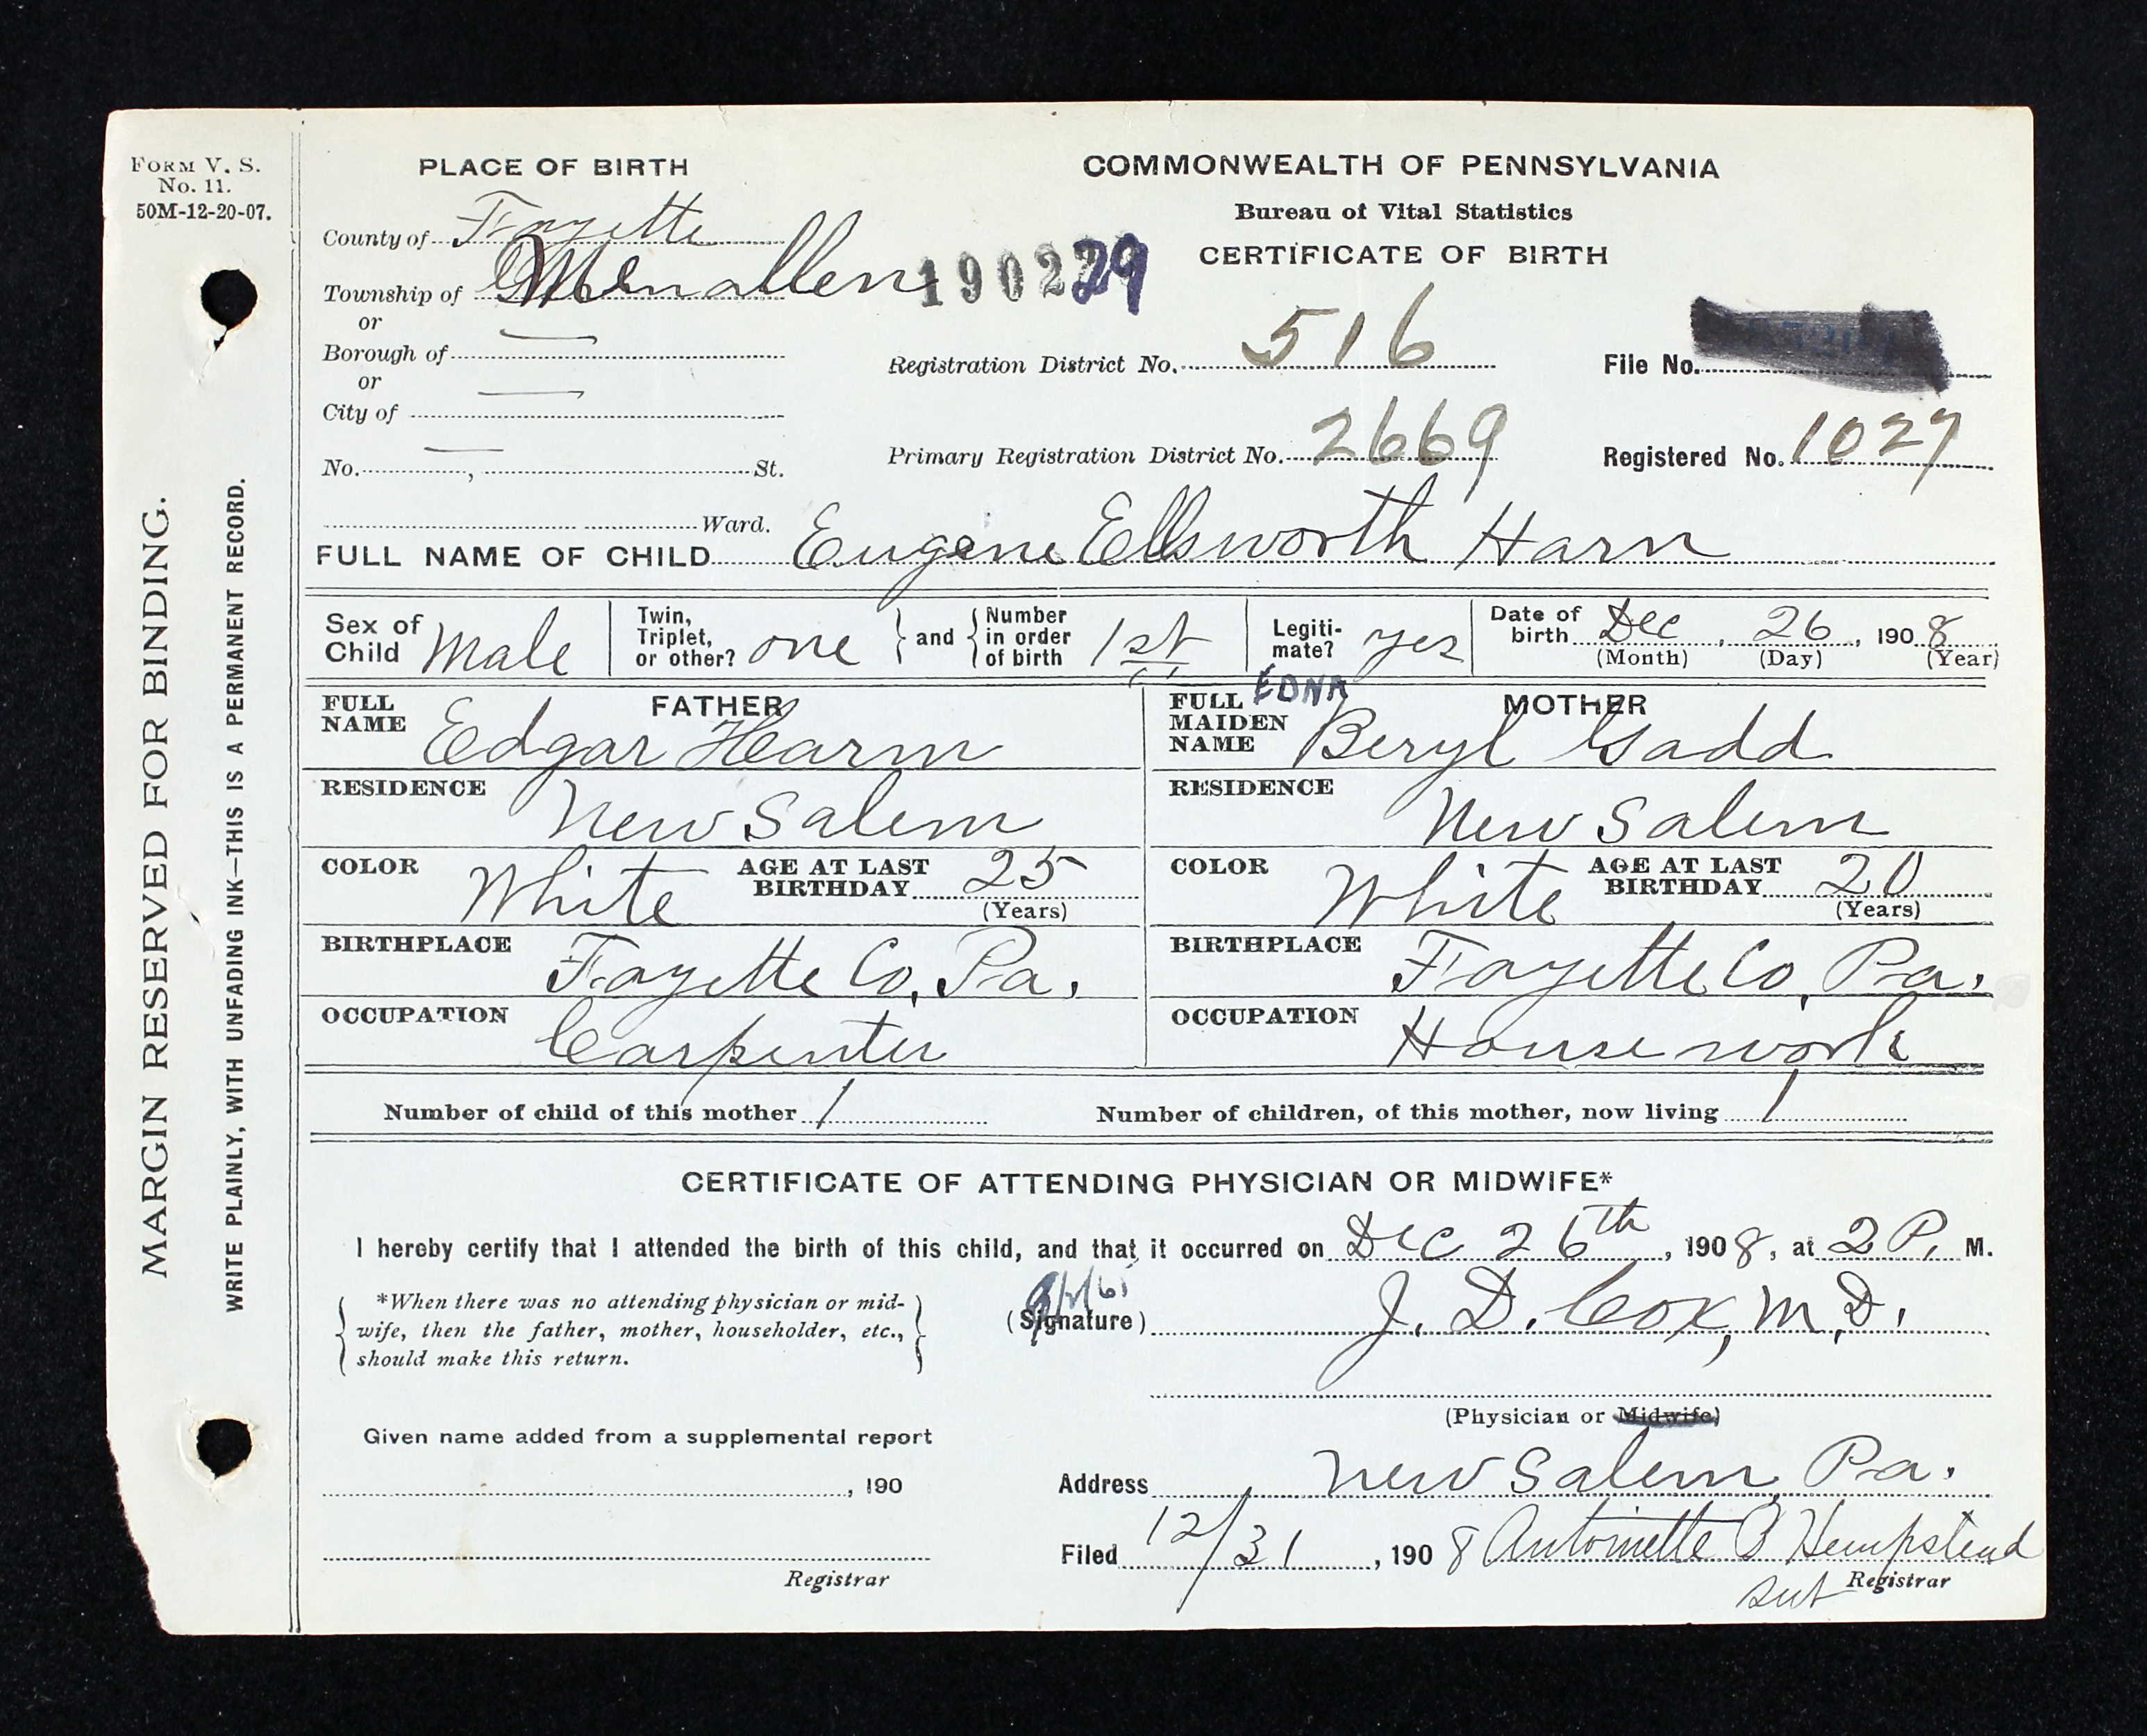 FORM V. S.
No. 11.
50M-12-20-07.
MARGIN RESERVED FOR BINDING.
WRITE PLAINLY, WITH UNFADING INK—THIS IS A PERMANENT RECORD.
PLACE OF BIRTH
County of Fayette
Township of Menallen
or
Borough of —
or
City of —
No. — , St.
Ward.
COMMONWEALTH OF PENNSYLVANIA
Bureau of Vital Statistics
CERTIFICATE OF BIRTH
190229
Registration District No. 516
File No.
Primary Registration District No. 2669
Registered No. 1027
FULL NAME OF CHILD Eugene Ellsworth Harn
Sex of Child Male
Twin, Triplet, or other? one
and
Number in order of birth 1st
Legiti-mate? yes
Date of birth Dec, 26, 1908
(Month) (Day) (Year)
FATHER
FULL NAME Edgar Hearn
RESIDENCE New Salem
COLOR White AGE AT LAST BIRTHDAY 25
(Years)
BIRTHPLACE Fayette Co, Pa.
OCCUPATION Carpenter
MOTHER
FULL MAIDEN NAME EDNA Beryl Gadd
RESIDENCE New Salem
COLOR White AGE AT LAST BIRTHDAY 20
(Years)
BIRTHPLACE Fayette Co, Pa.
OCCUPATION Housework
Number of child of this mother 1 Number of children, of this mother, now living 1
CERTIFICATE OF ATTENDING PHYSICIAN OR MIDWIFE*
I hereby certify that I attended the birth of this child, and that it occurred on Dec 26th, 1908, at 2 P. M.
*When there was no attending physician or mid-
wife, then the father, mother, householder, etc.,
should make this return.
(Signature) J. D. Cox, M.D.
(Physician or Midwife)
Given name added from a supplemental report
, 190
Registrar
Address New Salem, Pa.
Filed 12/31, 1908 Antoinette B Hempstead
sub Registrar